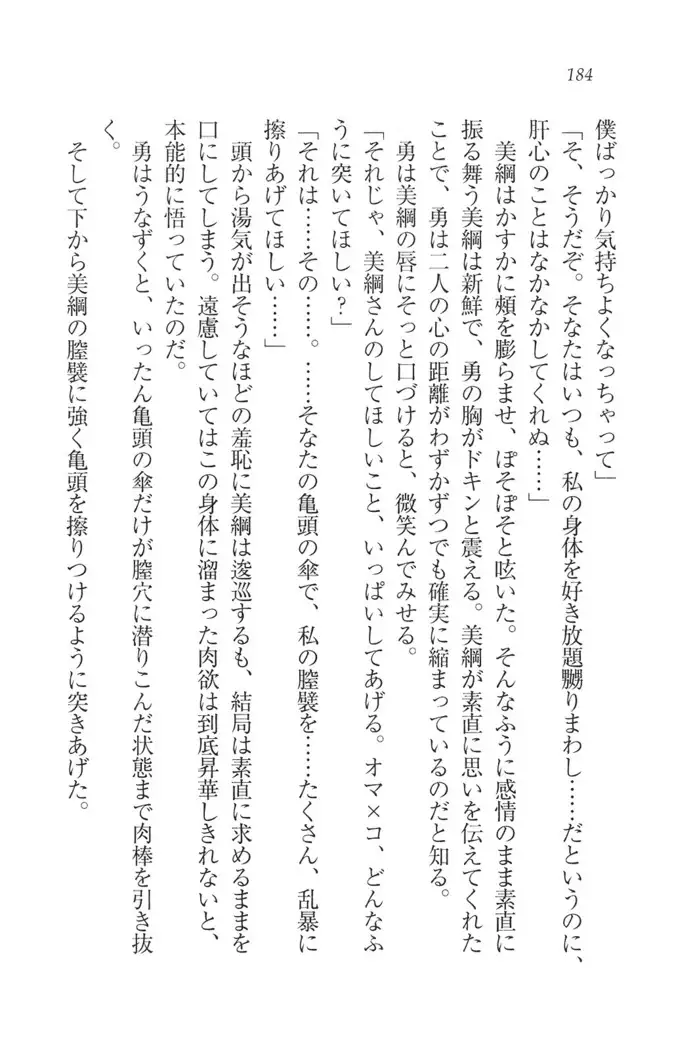 184
僕ばっかり気持ちよくなっちゃって」
「そ、そうだぞ。そなたはいつも、私の身体を好き放題嬲りまわし……だというのに、
肝心のことはなかなかしてくれぬ……」
美綱はかすかに頰を膨らませ、ぽそぽそと呟いた。そんなふうに感情のまま素直に
振る舞う美綱は新鮮で、勇の胸がドキンと震える。美綱が素直に思いを伝えてくれた
ことで、勇は二人の心の距離がわずかずつでも確実に縮まっているのだと知る。
勇は美綱の唇にそっと口づけると、微笑んでみせる。
「それじゃ、美綱さんのしてほしいこと、いっぱいしてあげる。オマ×コ、どんなふ
うに突いてほしい?」
「それは……その……。……そなたの亀頭の傘で、私の膣襞を……たくさん、乱暴に
擦りあげてほしい……」
頭から湯気が出そうなほどの羞恥に美綱は逡巡するも、結局は素直に求めるままを
口にしてしまう。遠慮していてはこの身体に溜まった肉欲は到底昇華しきれないと、
本能的に悟っていたのだ。
勇はうなずくと、いったん亀頭の傘だけが膣穴に潜りこんだ状態まで肉棒を引き抜
く。
そして下から美綱の膣襞に強く亀頭を擦りつけるように突きあげた。